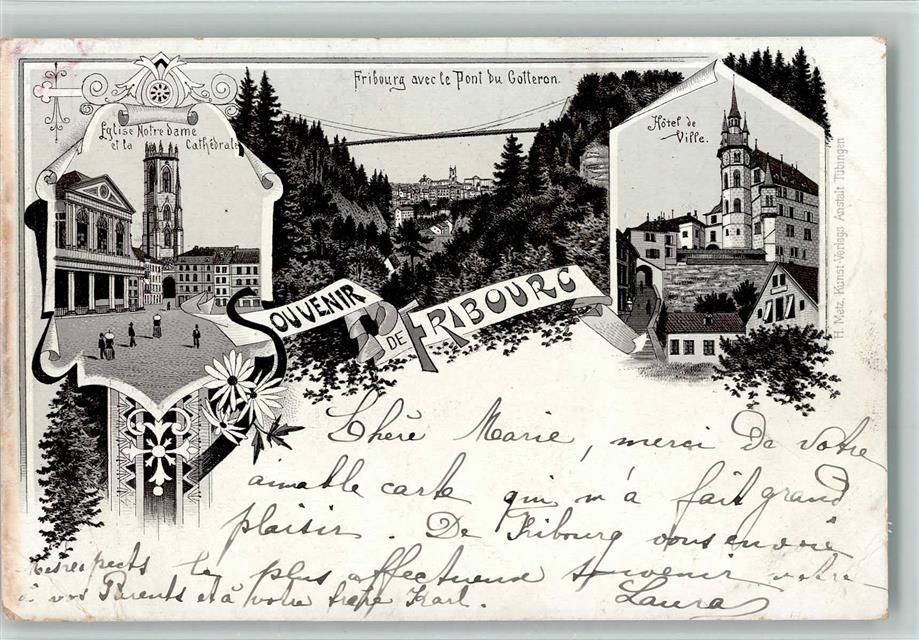 Fribourg avec le Pont du Gotteron.
Eglise Notre Dame
et la Cathédrale
Hôtel de
Ville.
SOUVENIR
DE FRIBOURG
H. Metz, Kunst-Verlags Anstalt Tübingen
Chère Marie, merci De votre
aimable carte qui m'a fait grand
plaisir. De Fribourg vous envoie
le plus affectueux souvenir votre
Laura
Mes respects
à vos Parents et à votre frère Karl.